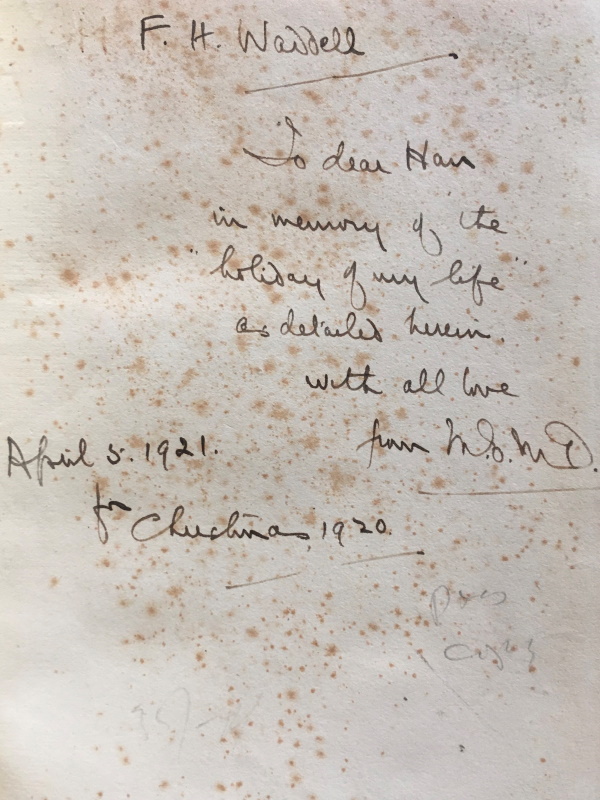 F. H. Waddell
To dear Han
in memory of "the
"holiday of my life"
as detailed herein.
with all love
from
April 5. 1921.
for Christmas, 1920.